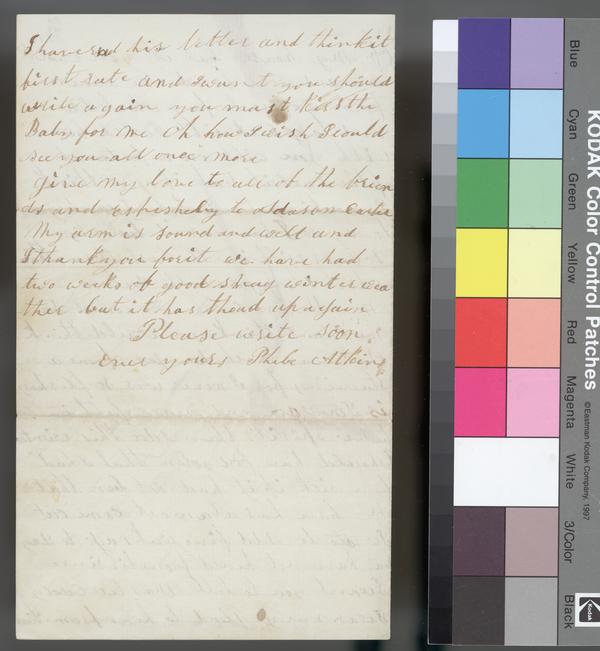 I have read his letter and think it
first rate and I want you should
write again you must kiss the
Baby for me Oh how I wish I could
see you all once more
give my love to all of the frien
ds and espeshely to
My arm is sound and well and
I thank you for it we have had
two weeks of good snug winter wea
ther but it has thoud up again
Please write soon
ever yours Phebe Atkins
KODAK Color Control Patches
©Eastman Kodak Company, 1997
Blue
Cyan
Green
Yellow
Red
Magenta
White
3/Color
Black
Kodak